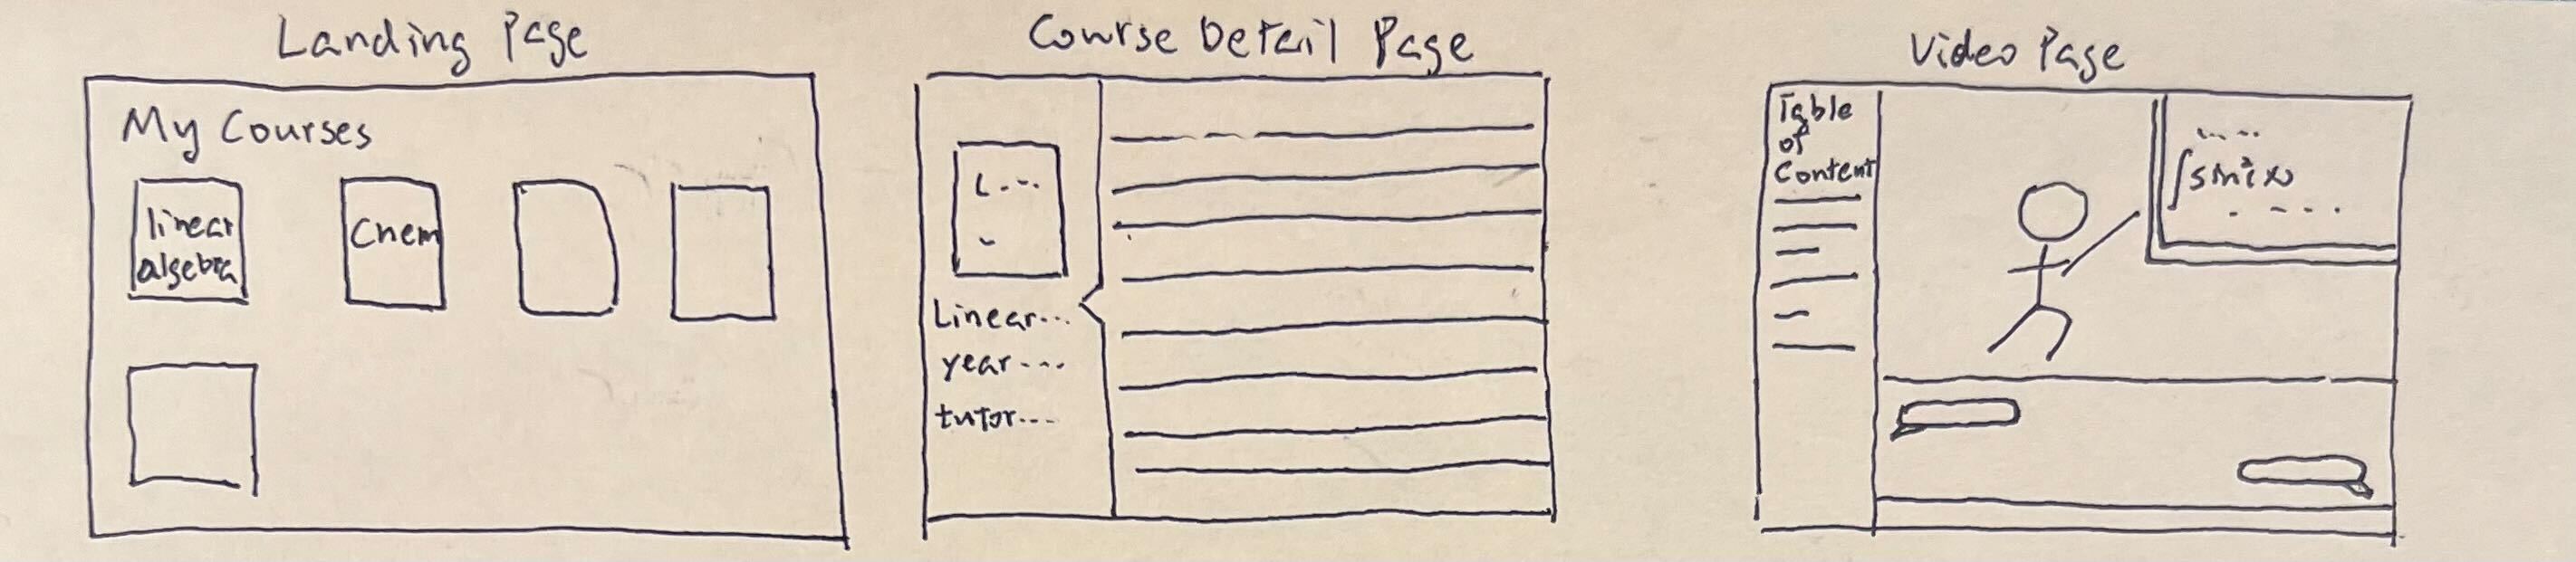 Landing Page
My Courses
linear
algebra
Chem
Course Detail Page
L...
Linear...
year...
tutor...
Video Page
Table
of
Content
.....
∫sin²x
. - - - .